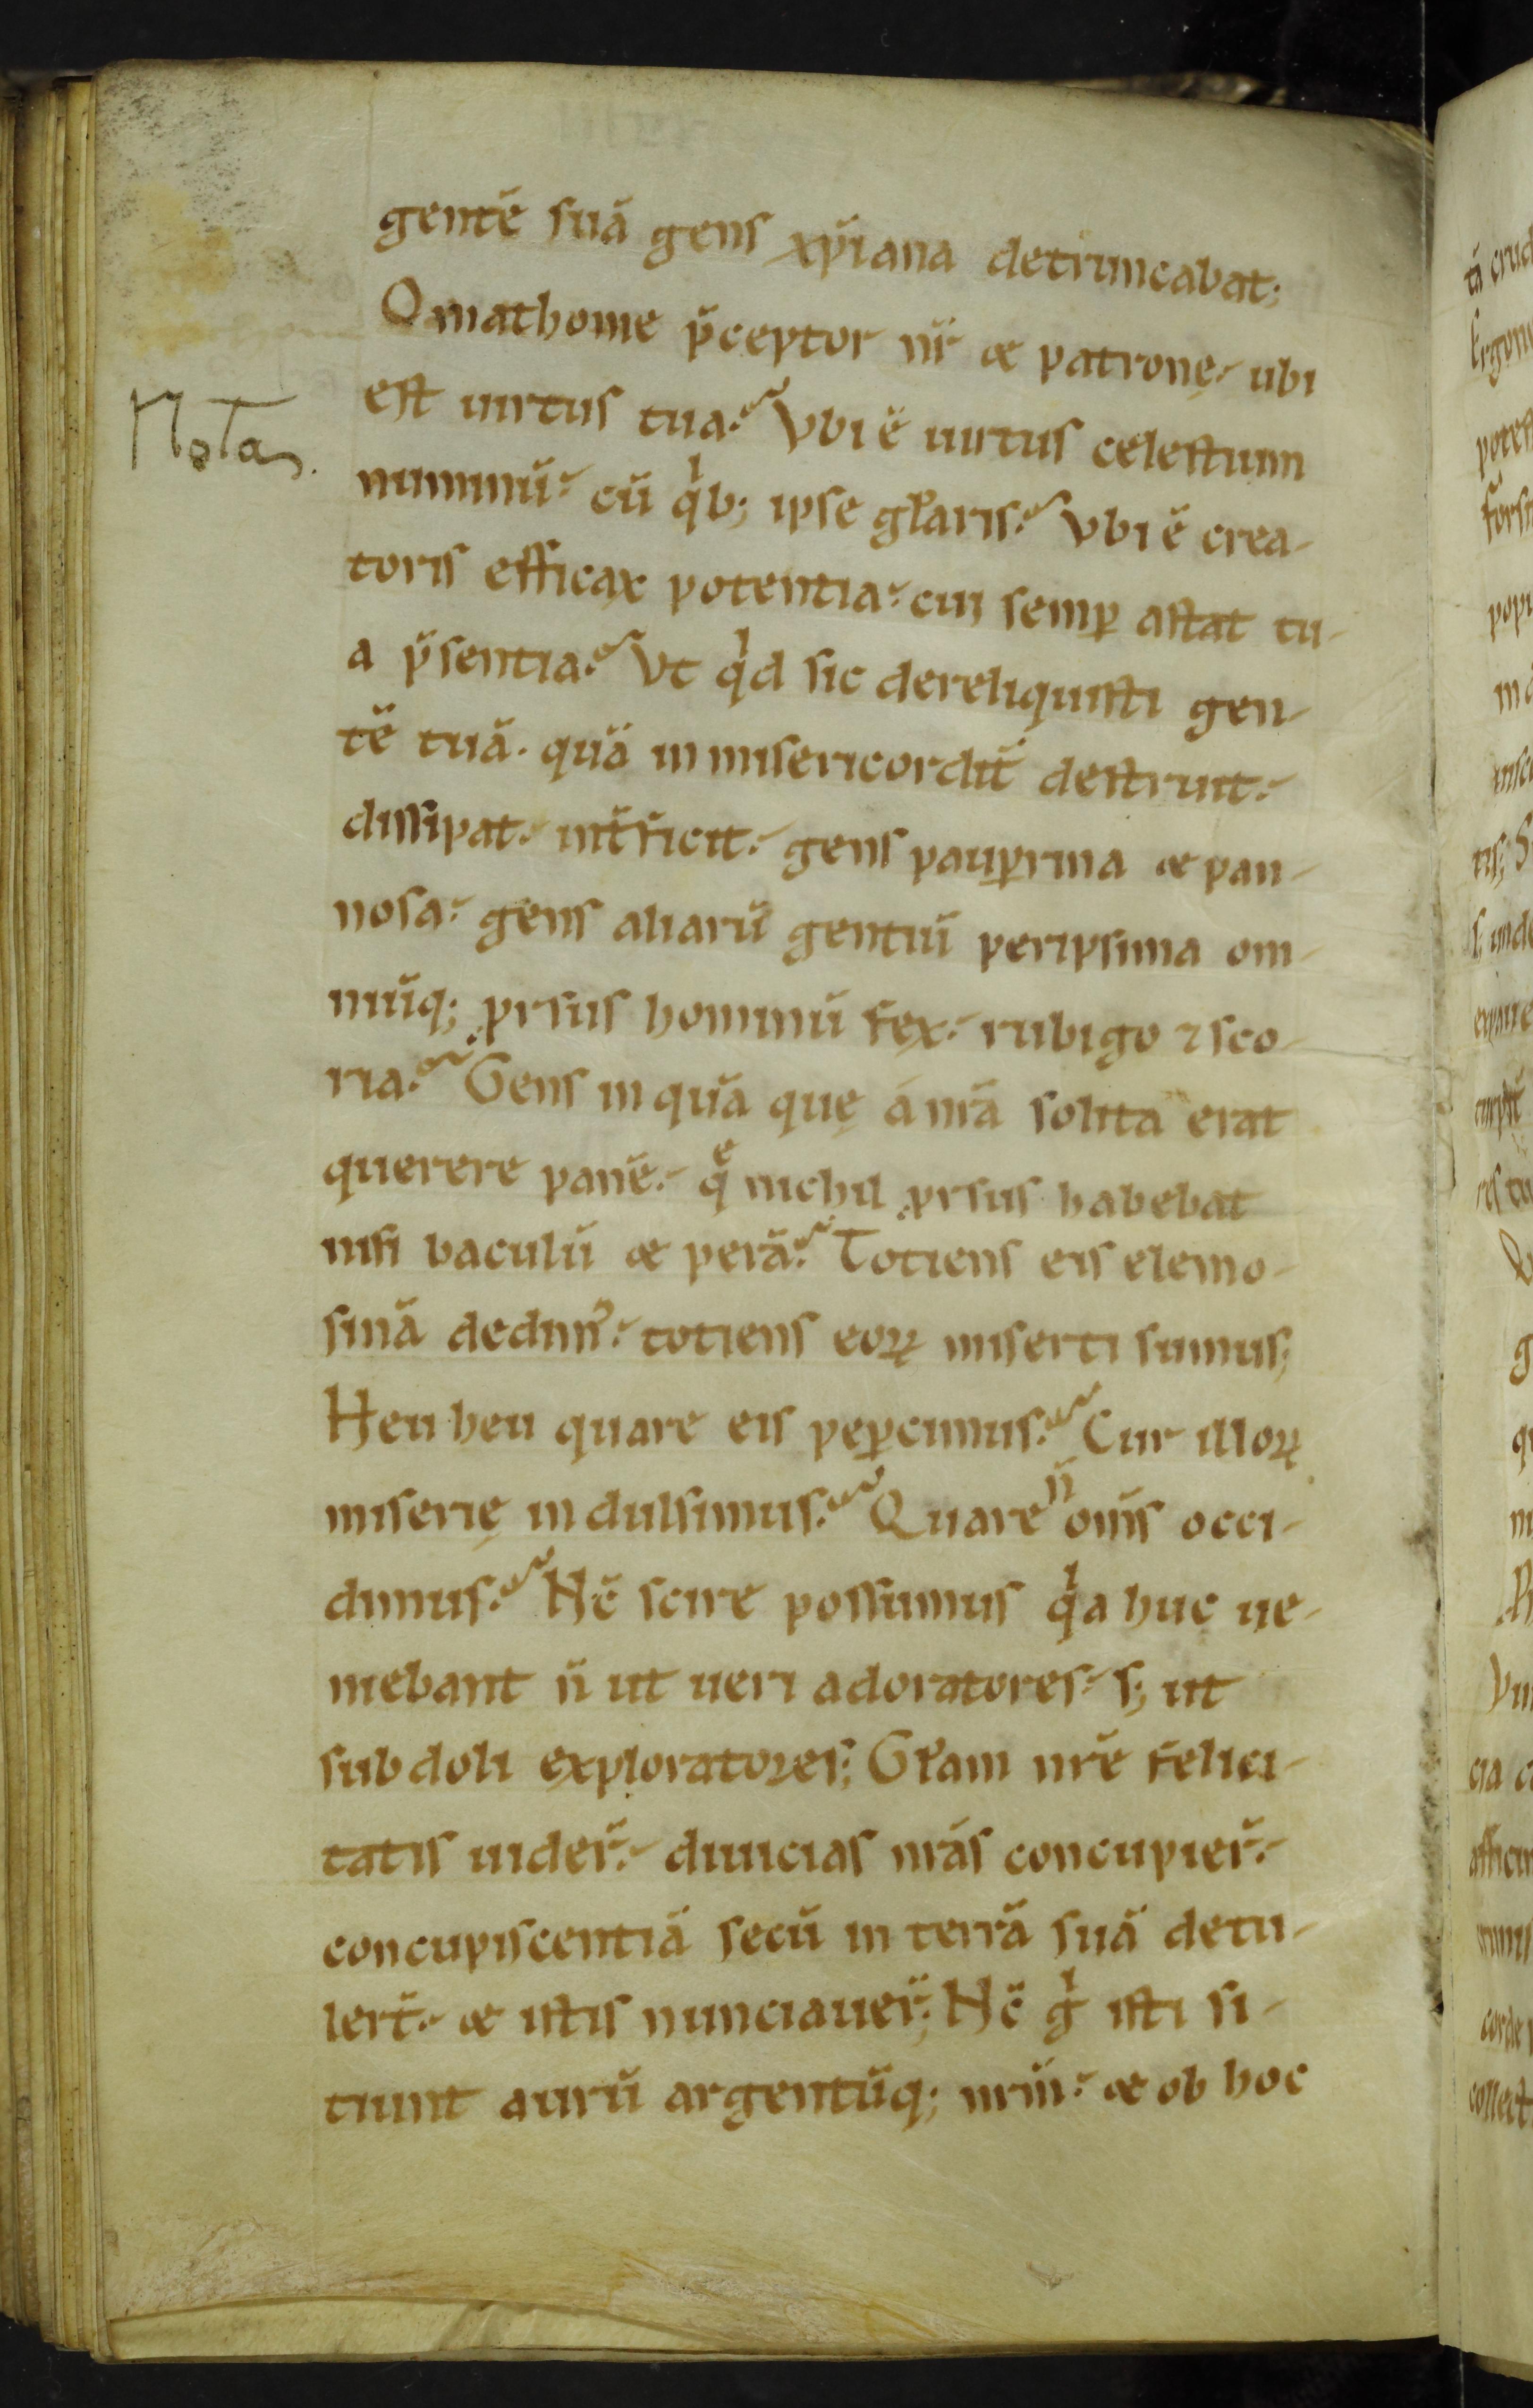 gentē suā gens xp̄iana detruncabat;
O mathome p̄ceptor nr̄ & patronę. ubi
est uirtus tua? Vbi ē uirtus celestium
Nota
numinū. cū qͥb; ipse gl̄aris? Vbi ē crea-
toris efficax potentia. cui semꝑ astat tu-
a p̄sentia? Vt qͥd sic dereliquisti gen-
tē tuā. quā inmisericordit̄ destruit.
dissipat. int̄ficit. gens pauꝑrima & pan-
nosa. gens aliarū gentiū peripsima om-
niūq; ꝓrsus hominū fex. rubigo ⁊ sco-
ria? Gens inquā quę á nrā solita erat
querere panē. qͤ nichil ꝓrsus habebat
nisi baculū & perā? Totiens eis elemo-
sinā dedimꝰ. totiens eoꝝ miserti sumus;
Heu heu quare eis peꝑcimus? Cur illoꝝ
miserię indulsimus? Quare n̄ om̄s occi-
dimus? Nc̄ scire possumus qͥa huc ue-
niebant n̄ ut ueri adoratores. s; ut
subdoli exploratores; Gl̄am nrē felici-
tatis uider̄. diuicias nrās concupier̄.
concupiscentiā secū in terrā suā detu-
lert̄. & istis nunciauer̄; Nc̄ gͥ isti si-
tiunt aurū argentūq; nrm̄. & ob hoc